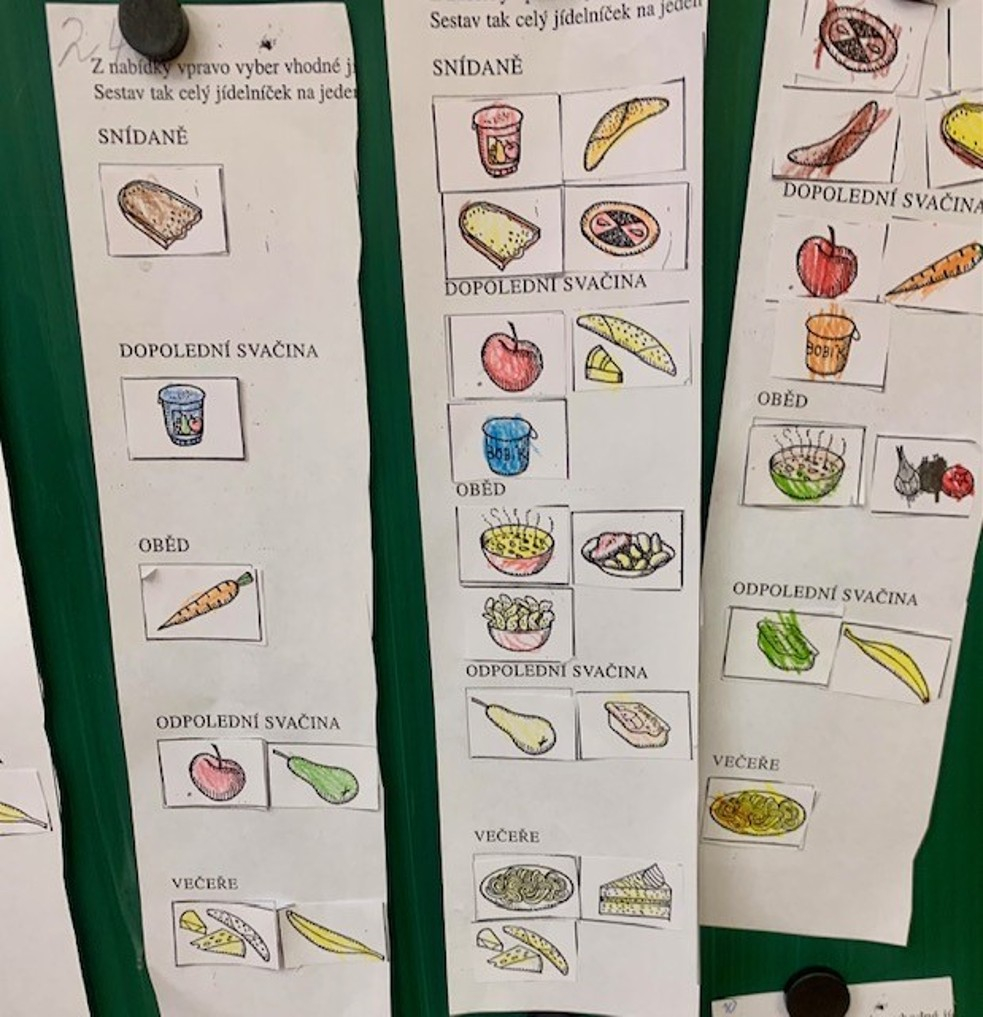 2,
Z nabídky vpravo vyber vhodné j
Sestav tak celý jídelníček na jede
SNÍDANĚ
DOPOLEDNÍ SVAČINA
OBĚD
ODPOLEDNÍ SVAČINA
VEČEŘE
Sestav tak celý jídelníček na jeden
SNÍDANĚ
DOPOLEDNÍ SVAČINA
BOBÍK
OBĚD
ODPOLEDNÍ SVAČINA
VEČEŘE
DOPOLEDNÍ SVAČINA
BOBÍK
OBĚD
ODPOLEDNÍ SVAČINA
VEČEŘE